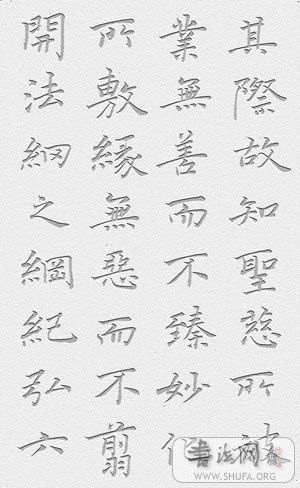 其際故知聖慈所被
業無善而不臻妙化
所敷緣無惡而不翦
開法網之綱紀弘六
书法网
WWW.SHUFA.ORG